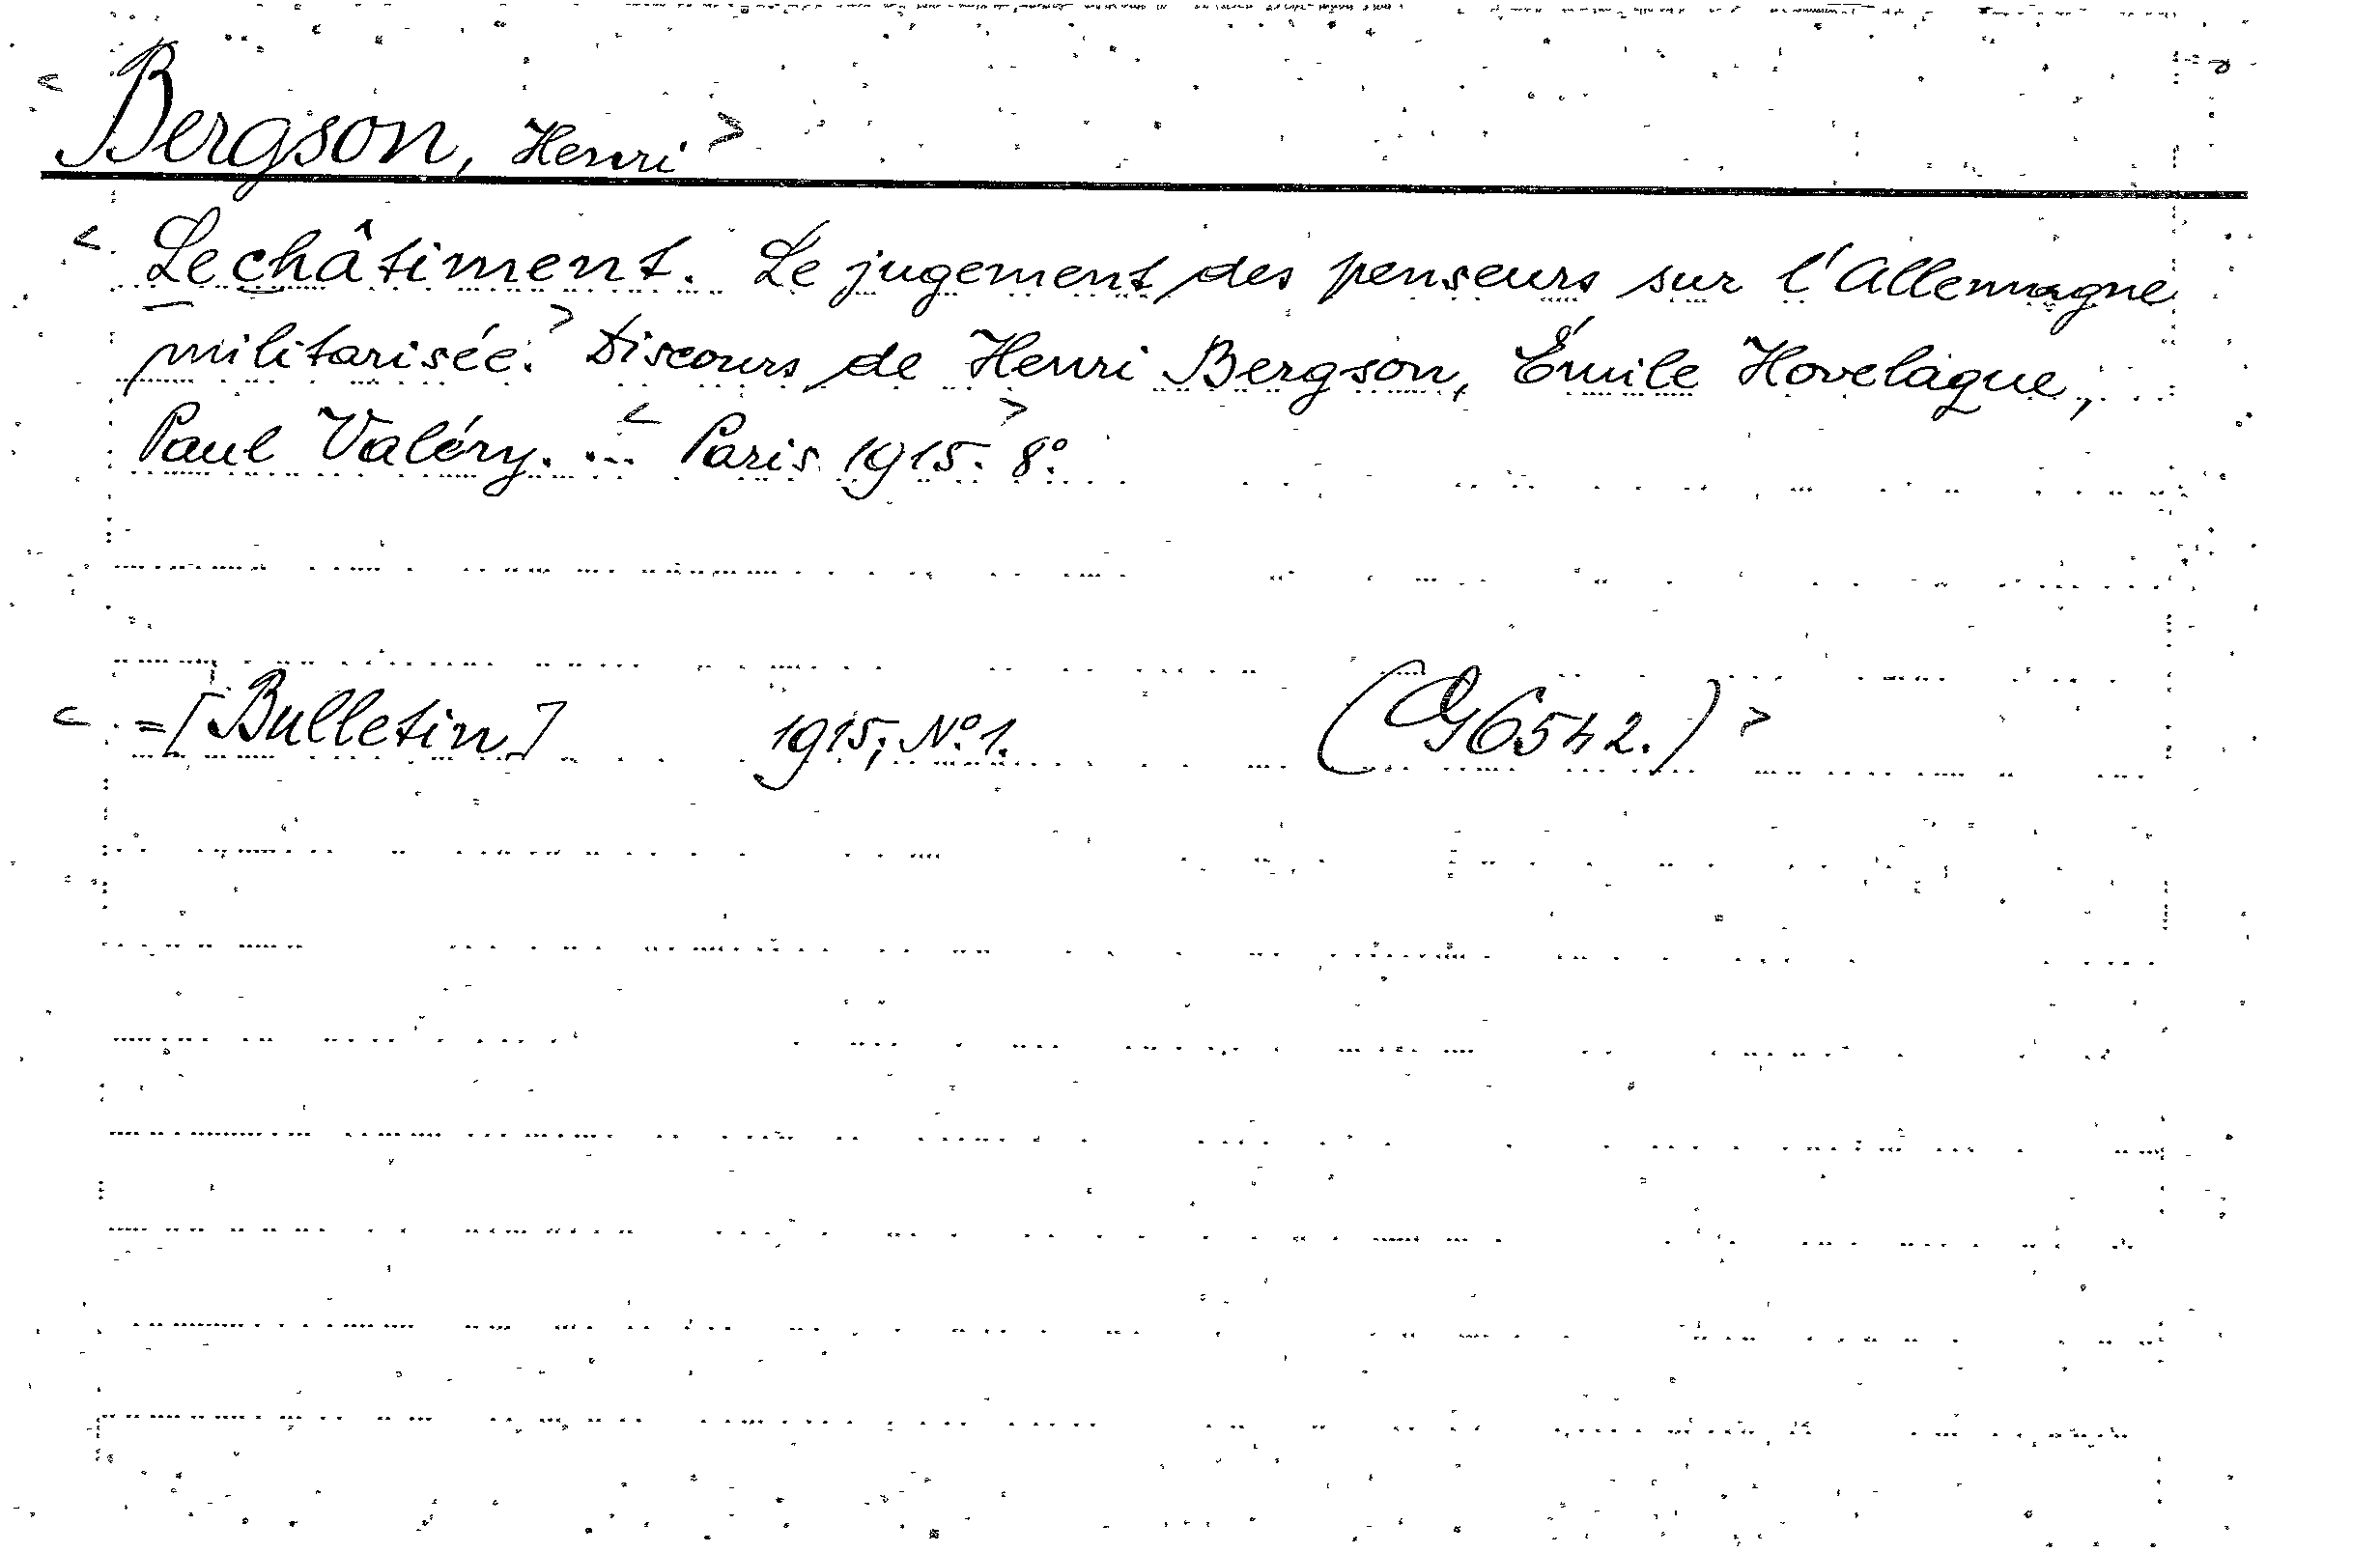 < Bergson, Henri >
< Le châtiment. Le jugement des penseurs sur l'Allemagne
militarisée. > Discours de Henri Bergson, Émile Hovelaque,
Paul Valéry. ... < Paris 1915. > 8°.
< =[Bulletin] 1915, No. 1. (G 6542.) >